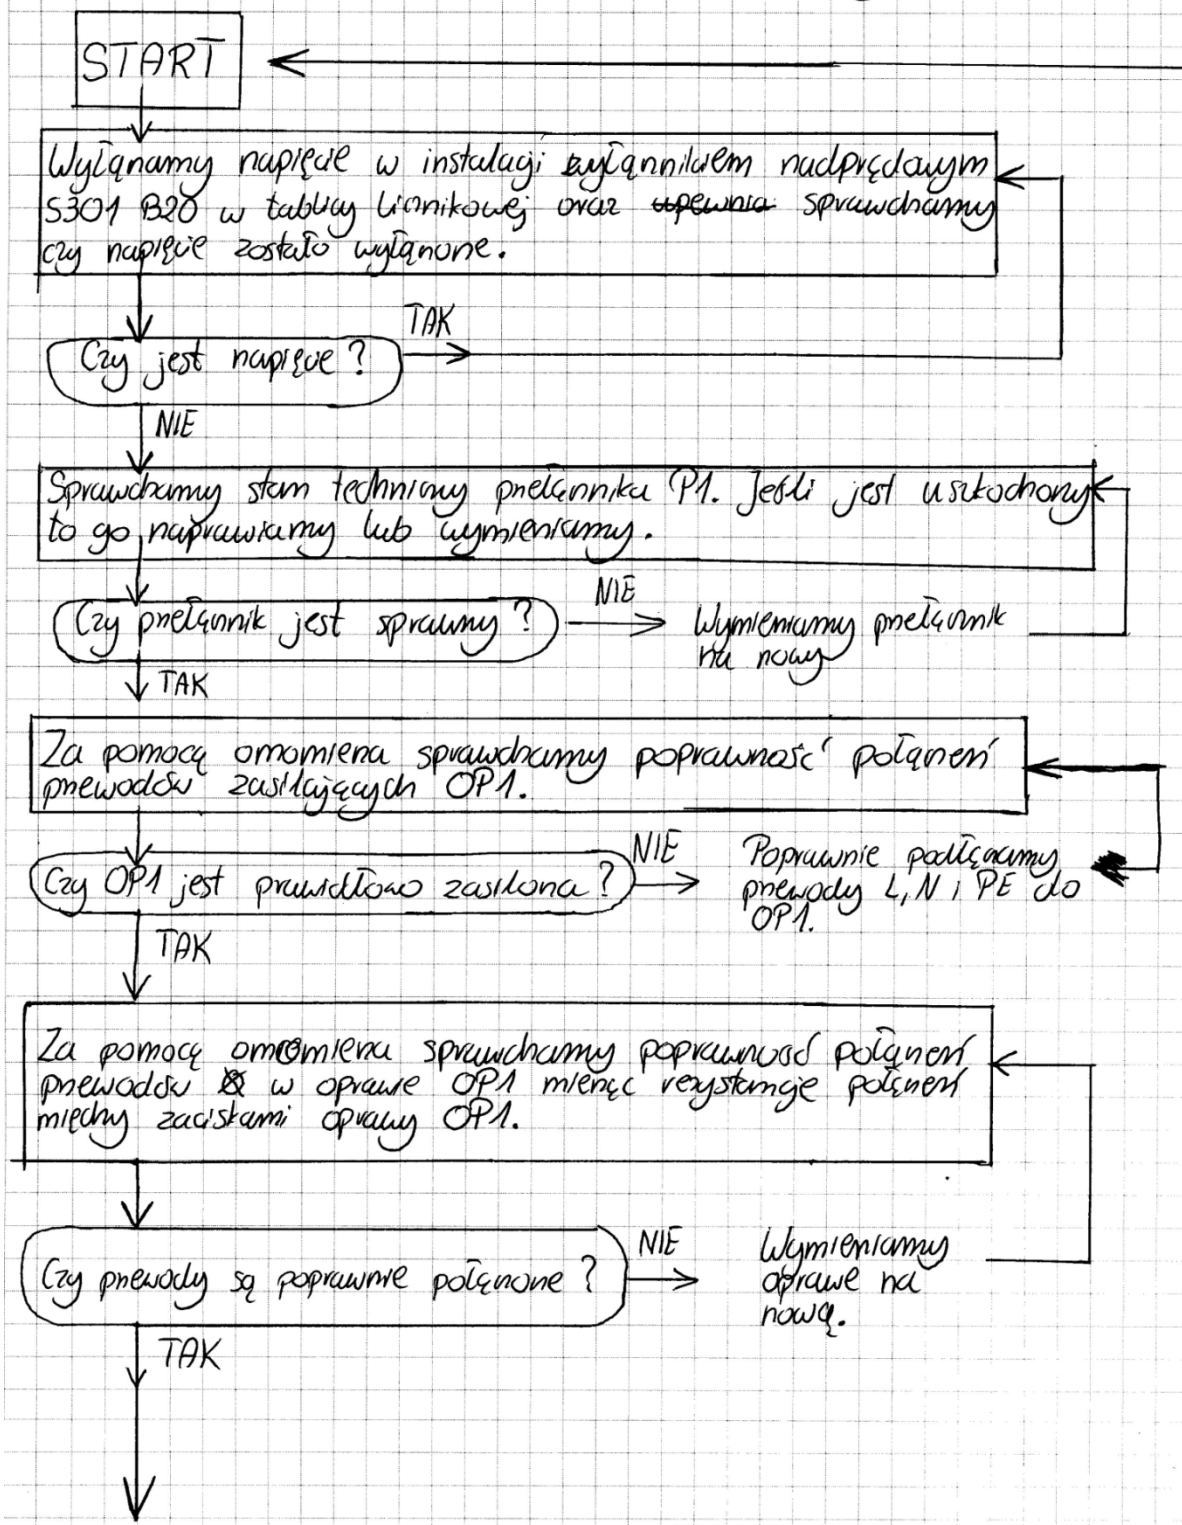 START
Wyłączamy napięcie w instalacji wyłącznikiem nadprądowym
S301 B20 w tablicy licznikowej oraz upewnia sprawdzamy
czy napięcie zostało wyłączone.
Czy jest napięcie?
TAK
NIE
Sprawdzamy stan techniczny przełącznika P1. Jeśli jest uszkodzony
to go naprawiamy lub wymieniamy.
Czy przełącznik jest sprawny?
NIE
Wymieniamy przełącznik
na nowy
TAK
Za pomocą omomierza sprawdzamy poprawność połączeń
przewodów zasilających OP1.
Czy OP1 jest prawidłowo zasilona?
NIE
Poprawnie podłączamy
przewody L, N i PE do
OP1.
TAK
Za pomocą omomierza sprawdzamy poprawność połączeń
przewodów w oprawie OP1 mierząc rezystancję połączeń
między zaciskami oprawy OP1.
Czy przewody są poprawnie połączone?
NIE
Wymieniamy
oprawe na
nową.
TAK